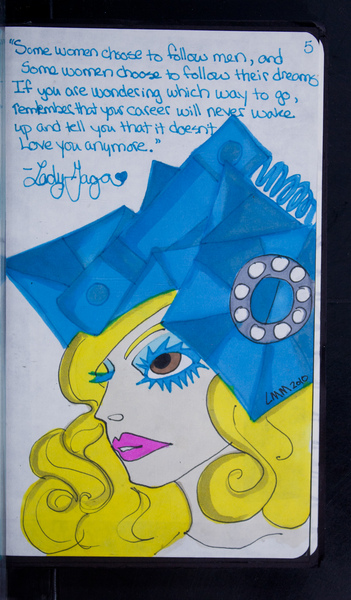 "Some women choose to follow men, and
Some women choose to follow their dreams
If you are wondering which way to go,
remember that your career will never wake
up and tell you that it doesn't
Love you anymore."
-Lady Gaga
5
LMM 2010